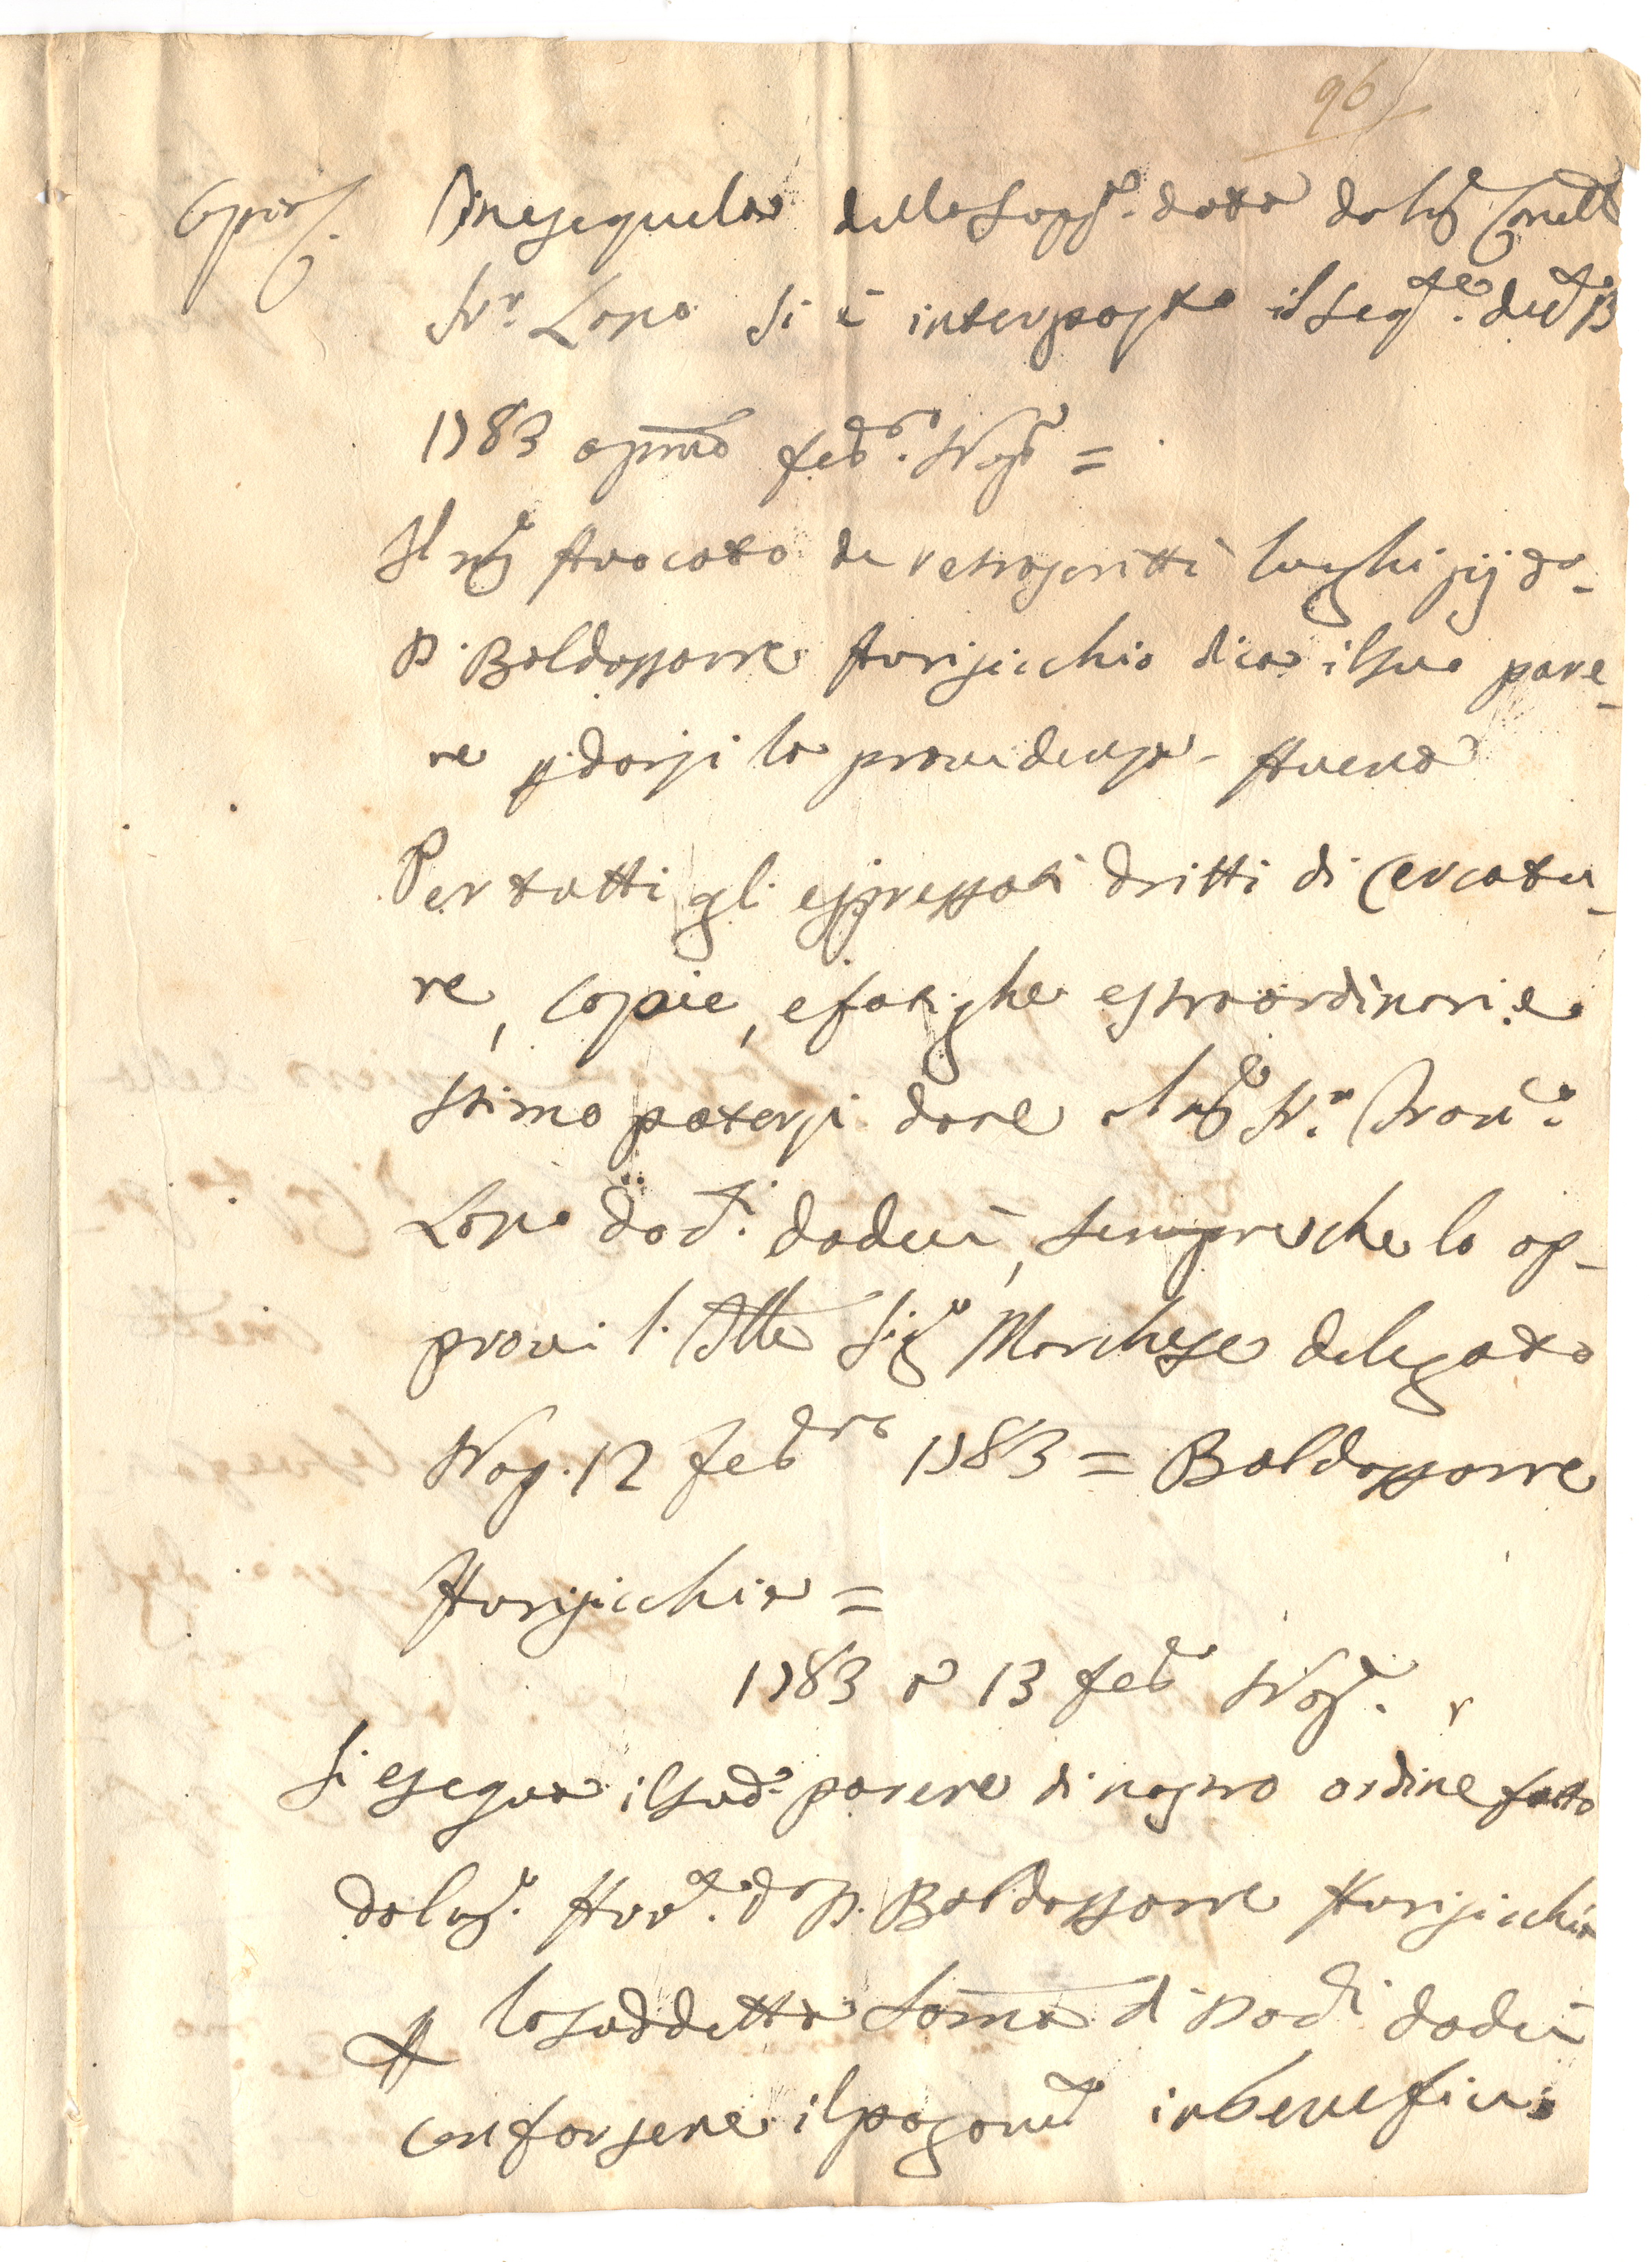 96
Copia
In esequela della Supp.ca data dal m.co
Not.r Lopo si è interposto il seg.te dec.to
1783 a primo feb.ro Nap. =
Il m.co Avocato de retroscritti luoghi pij D.r
D. Baldassarre Aurisicchio dica il suo pare-
re p darsi la providenza - Avena
Per tutti gli espressati dritti di cercatu-
re, copie, e fatighe estraordinarie
stimo potersi dare al m.co N.r Giov.i
Lopo doc.ti dodeci, sempreche lo ap-
provi l'Ill.e Sig.r Marchese delegato
Nap. 12 feb.ro 1783 = Baldassarre
Aurisicchio =
1783 a 13 feb.o Nap.
Si esegua il sud.o parere di nostro ordine fatto
dal m.co Avv.to D.r D. Baldassarre Aurisicchio
p la suddetta somma di doc.ti dodeci
con farsene il pagam.to in beneficio